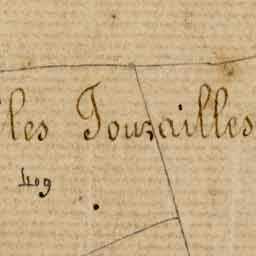 les Touzailles
409